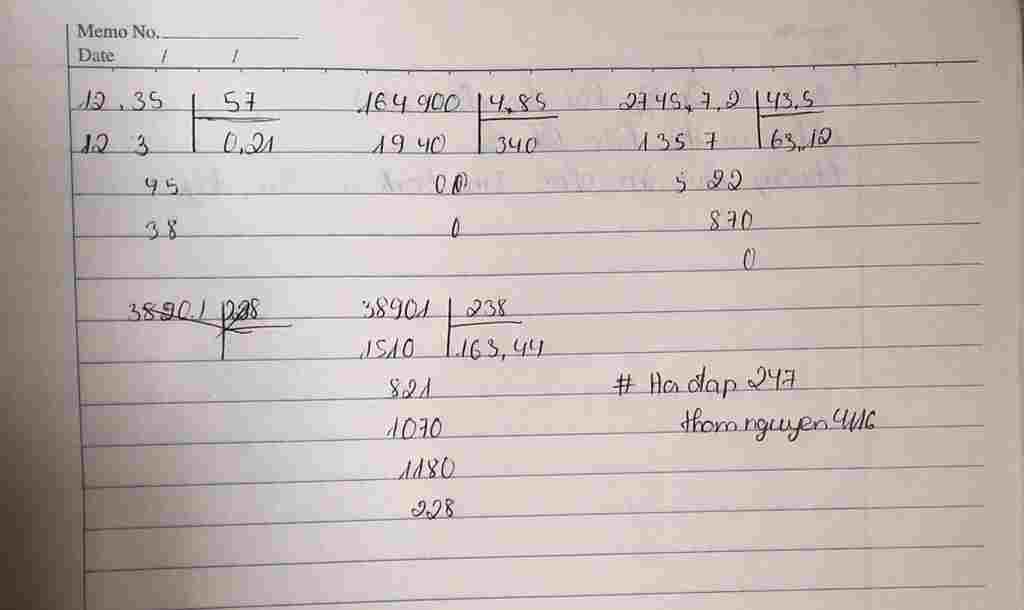 Memo No.
Date / /
12,35 57 164900 4,85 2745,7,2 43,5
12 3 0,21 1940 340 135 7 63,12
95 00 5 22
38 0 870
0
38901 238
1510 163,44
821 # Hoidap 247
1070 thomnguyen4116
1180
228